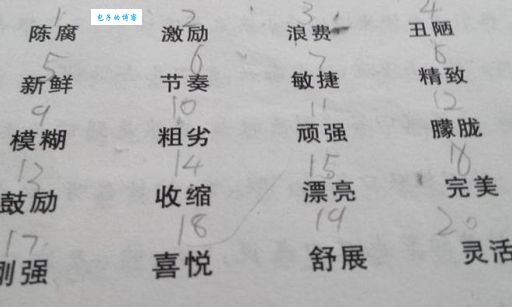 包子的博客
1 2 3 4
陈腐 激励 浪费 丑陋
5 6 7 8
新鲜 节奏 敏捷 精致
9 10 11 12
模糊 粗劣 顽强 朦胧
13 14 15 16
鼓励 收缩 漂亮 完美
17 18 19 20
刚强 喜悦 舒展 灵活